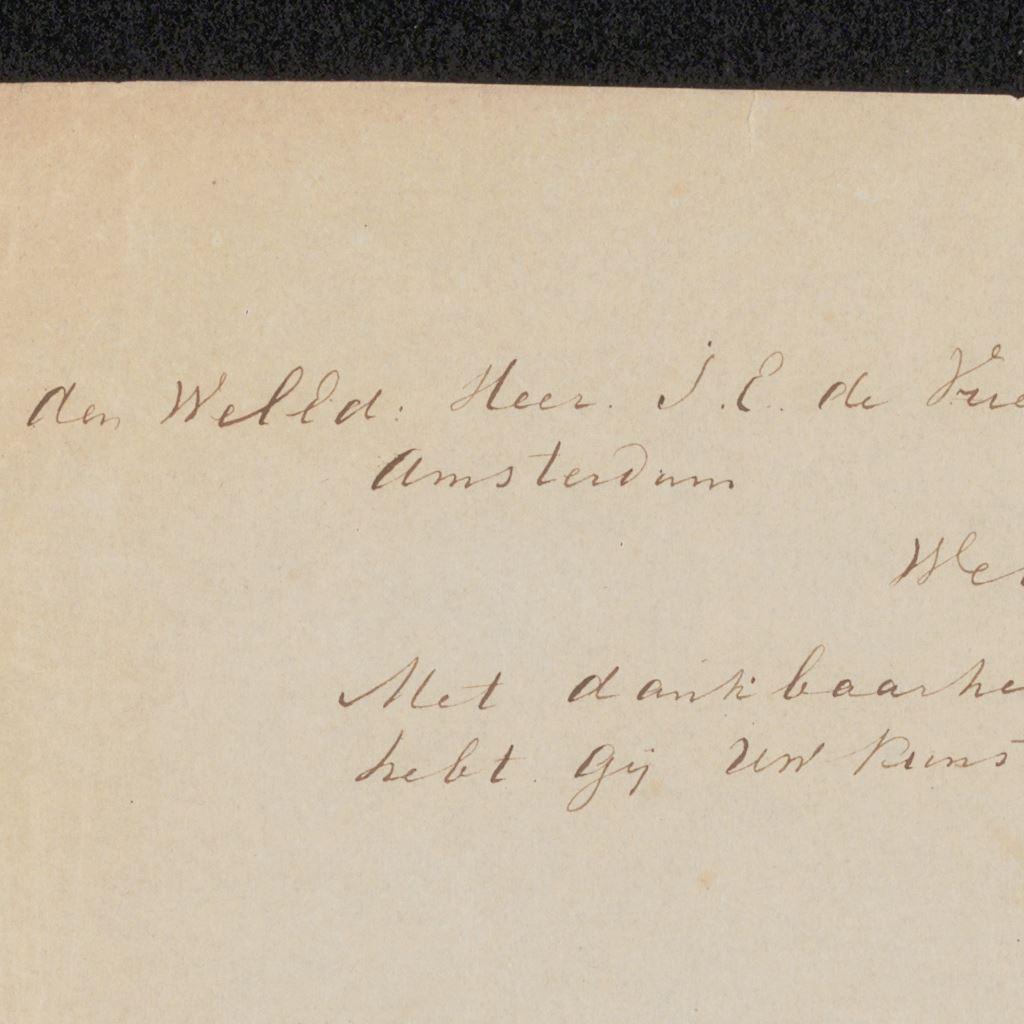 den WelEd: Heer. J. E. de Vrie
Amsterdam
Wel
Met dankbaarhe
hebt Gij Uw kuns